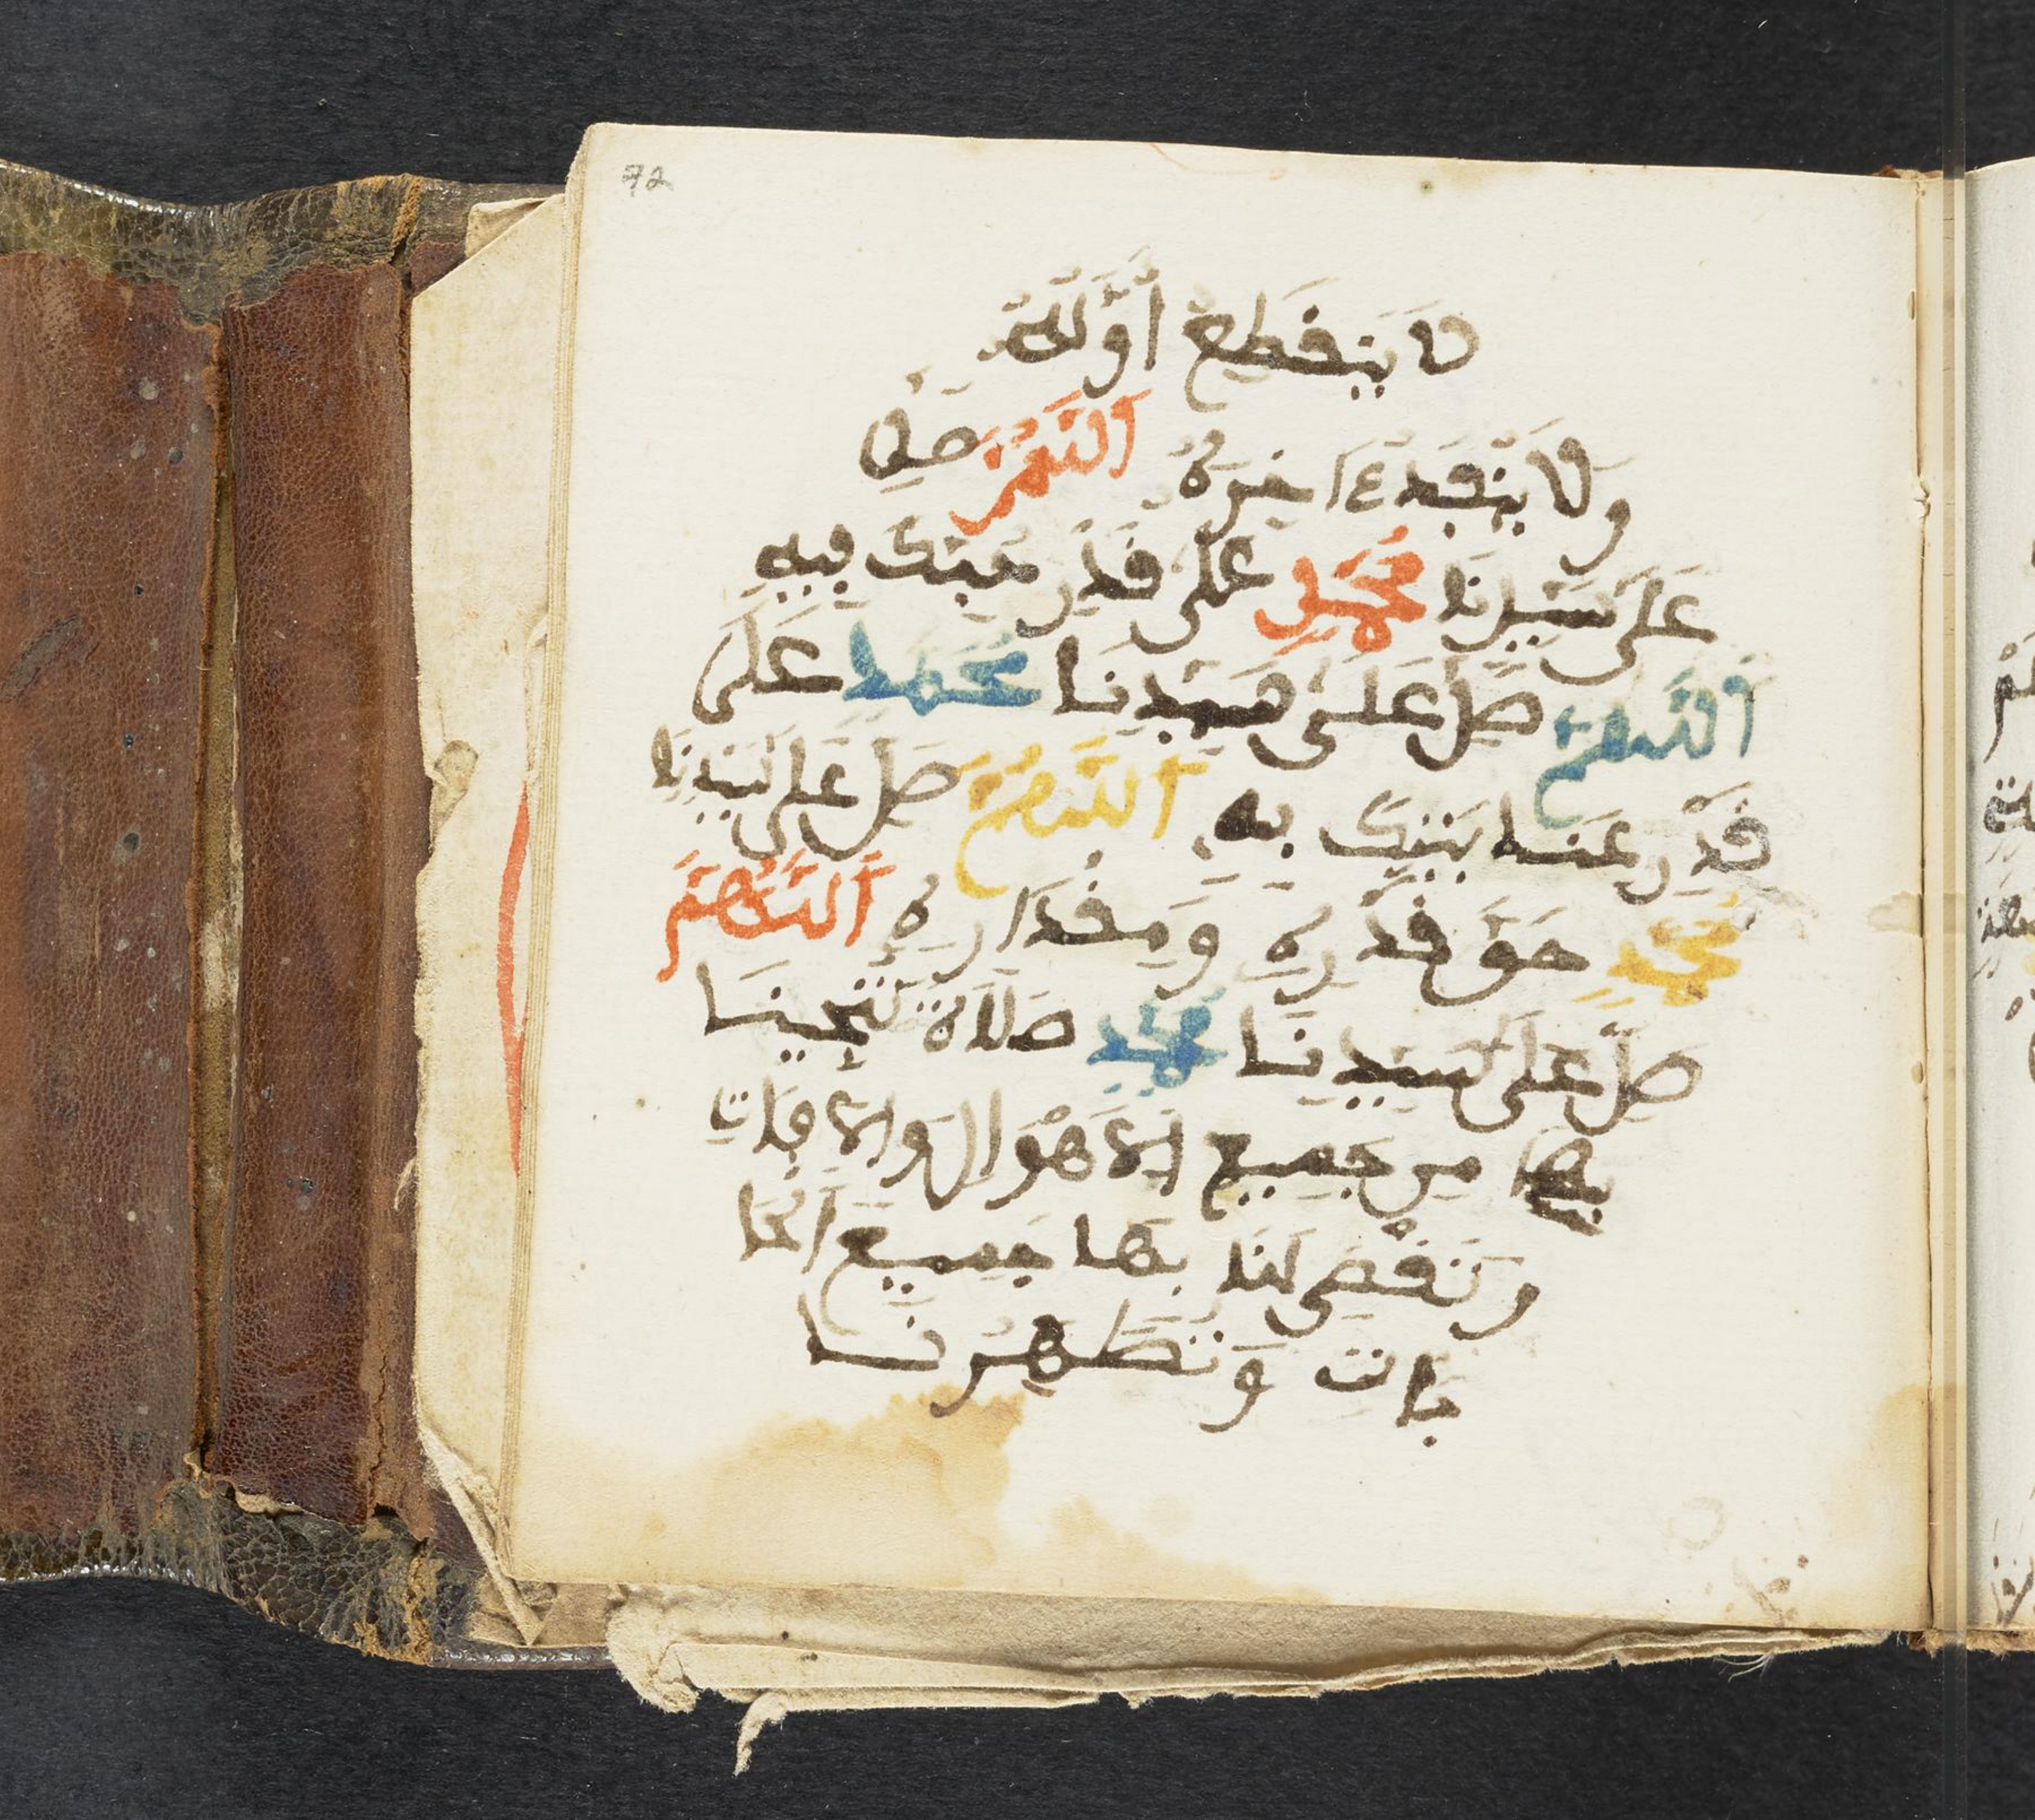 72
لَا يَنْقَطِعُ أَوَّلُهَا
وَلَا يَنْفَدُ ءَاخِرُهُ اَللَّهُمَّ صَلِّ
عَلَى سَيِّدِنَا مُحَمَّدٍ عَلَى قَدْرِ حُبِّكَ فِيهِ
اَللَّهُمَّ صَلِّ عَلَى سَيِّدِنَا مُحَمَّدٍ عَلَى
قَدْرِ عِنَايَتِكَ بِهِ اَللَّهُمَّ صَلِّ عَلَى سَيِّدِنَا
مُحَمَّدٍ حَقَّ قَدْرِهِ وَمِقْدَارِهِ اَللَّهُمَّ
صَلِّ عَلَى سَيِّدِنَا مُحَمَّدٍ صَلَاةً تُنْجِينَا
بِهَا مِن جَمِيعِ الْأَهْوَالِ وَالْآفَاتِ
وَتَقْضِي لَنَا بِهَا جَمِيعَ الْحَا
جَاتِ وَتُطَهِّرُنَا